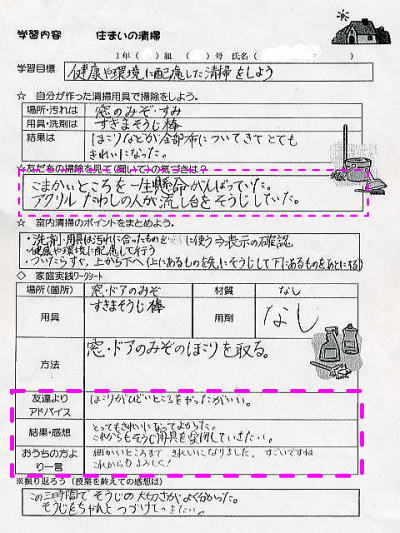 学習内容　住まいの清掃
1年（　）組　（　）号　氏名（　）
学習目標　健康や環境に配慮した清掃をしよう
☆ 自分が作った清掃用具で掃除をしよう。
場所・汚れは　窓のみぞ・すみ
用具・洗剤は　すきまそうじ棒
結果は　ほこりなどが全部布についてきてとても
きれいになった。
☆友だちの掃除を見て（聞いて）の気づきは？
こまかいところを一生懸命がんばっていた。
アクリルたわしの人が流し台をそうじしていた。
☆ 室内清掃のポイントをまとめよう。
・洗剤・用具はお汚れに合ったものを に使う⇒表示の確認
・健康や環境に配慮して行う
・ついたらすぐ、上から下へ（上にあるものを先にそうじして下にあるものをあとにする）
◇ 家庭実践ワークシート
場所（箇所）　窓・ドアのみぞ　材質　なし
用具　すきまそうじ棒　用剤　なし
方法　窓・ドアのみぞのほこりを取る。
友達よりアドバイス　ほこりがひどいところをやったがいい。
結果・感想　とってもきれいになってよかった。
これからもそうじ用具を愛用していきたい。
おうちの方より一言　細かいところまできれいになりました。すごいですね
これからもよろしく！
※振り返ろう（授業を終えての感想は）
この三時間でそうじの大切さがよく分かった。
そうじをちゃんとつづけていきたい。